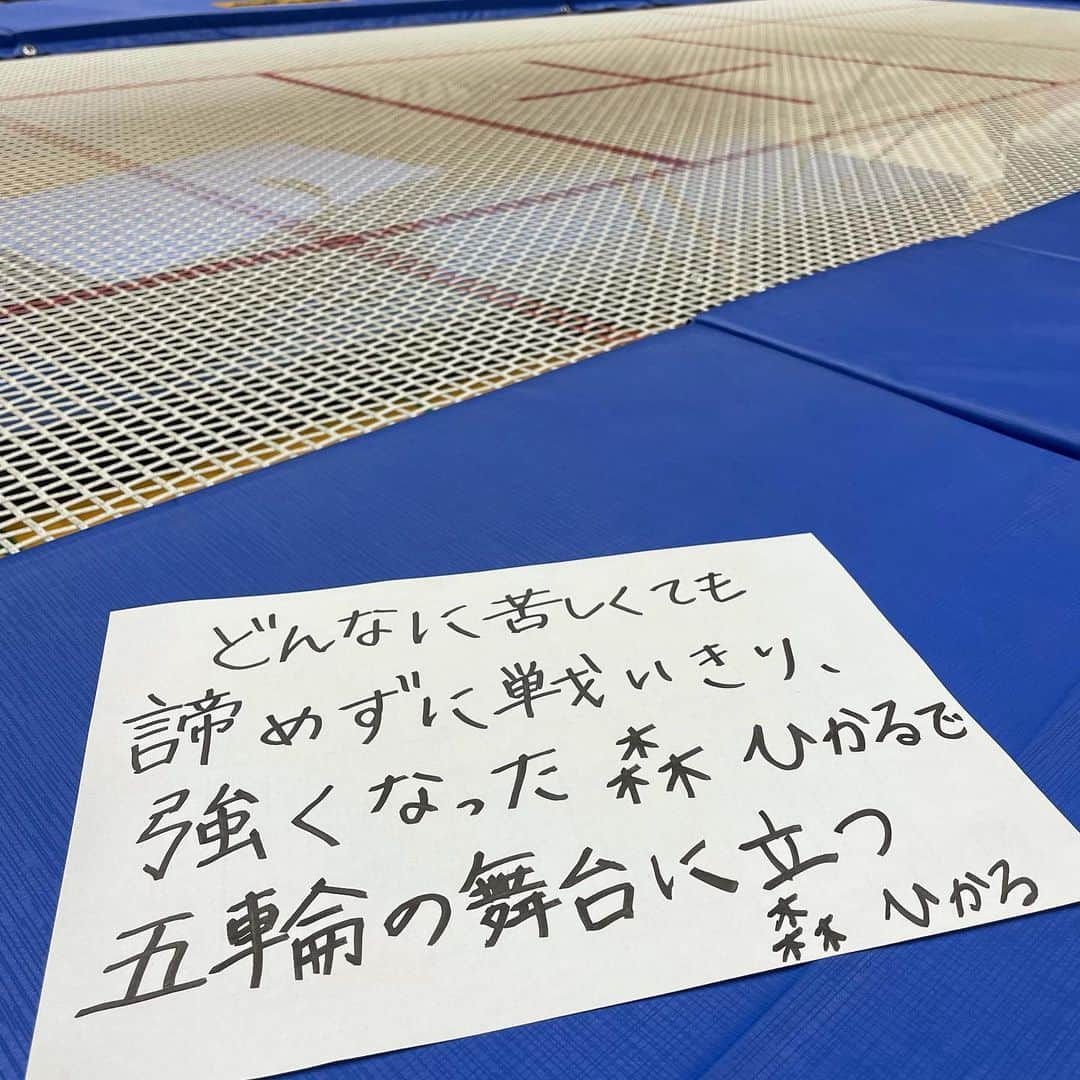 どんなに苦しくても
諦めずに戦いきり、
強くなった森ひかるで
五輪の舞台に立つ
森ひかる